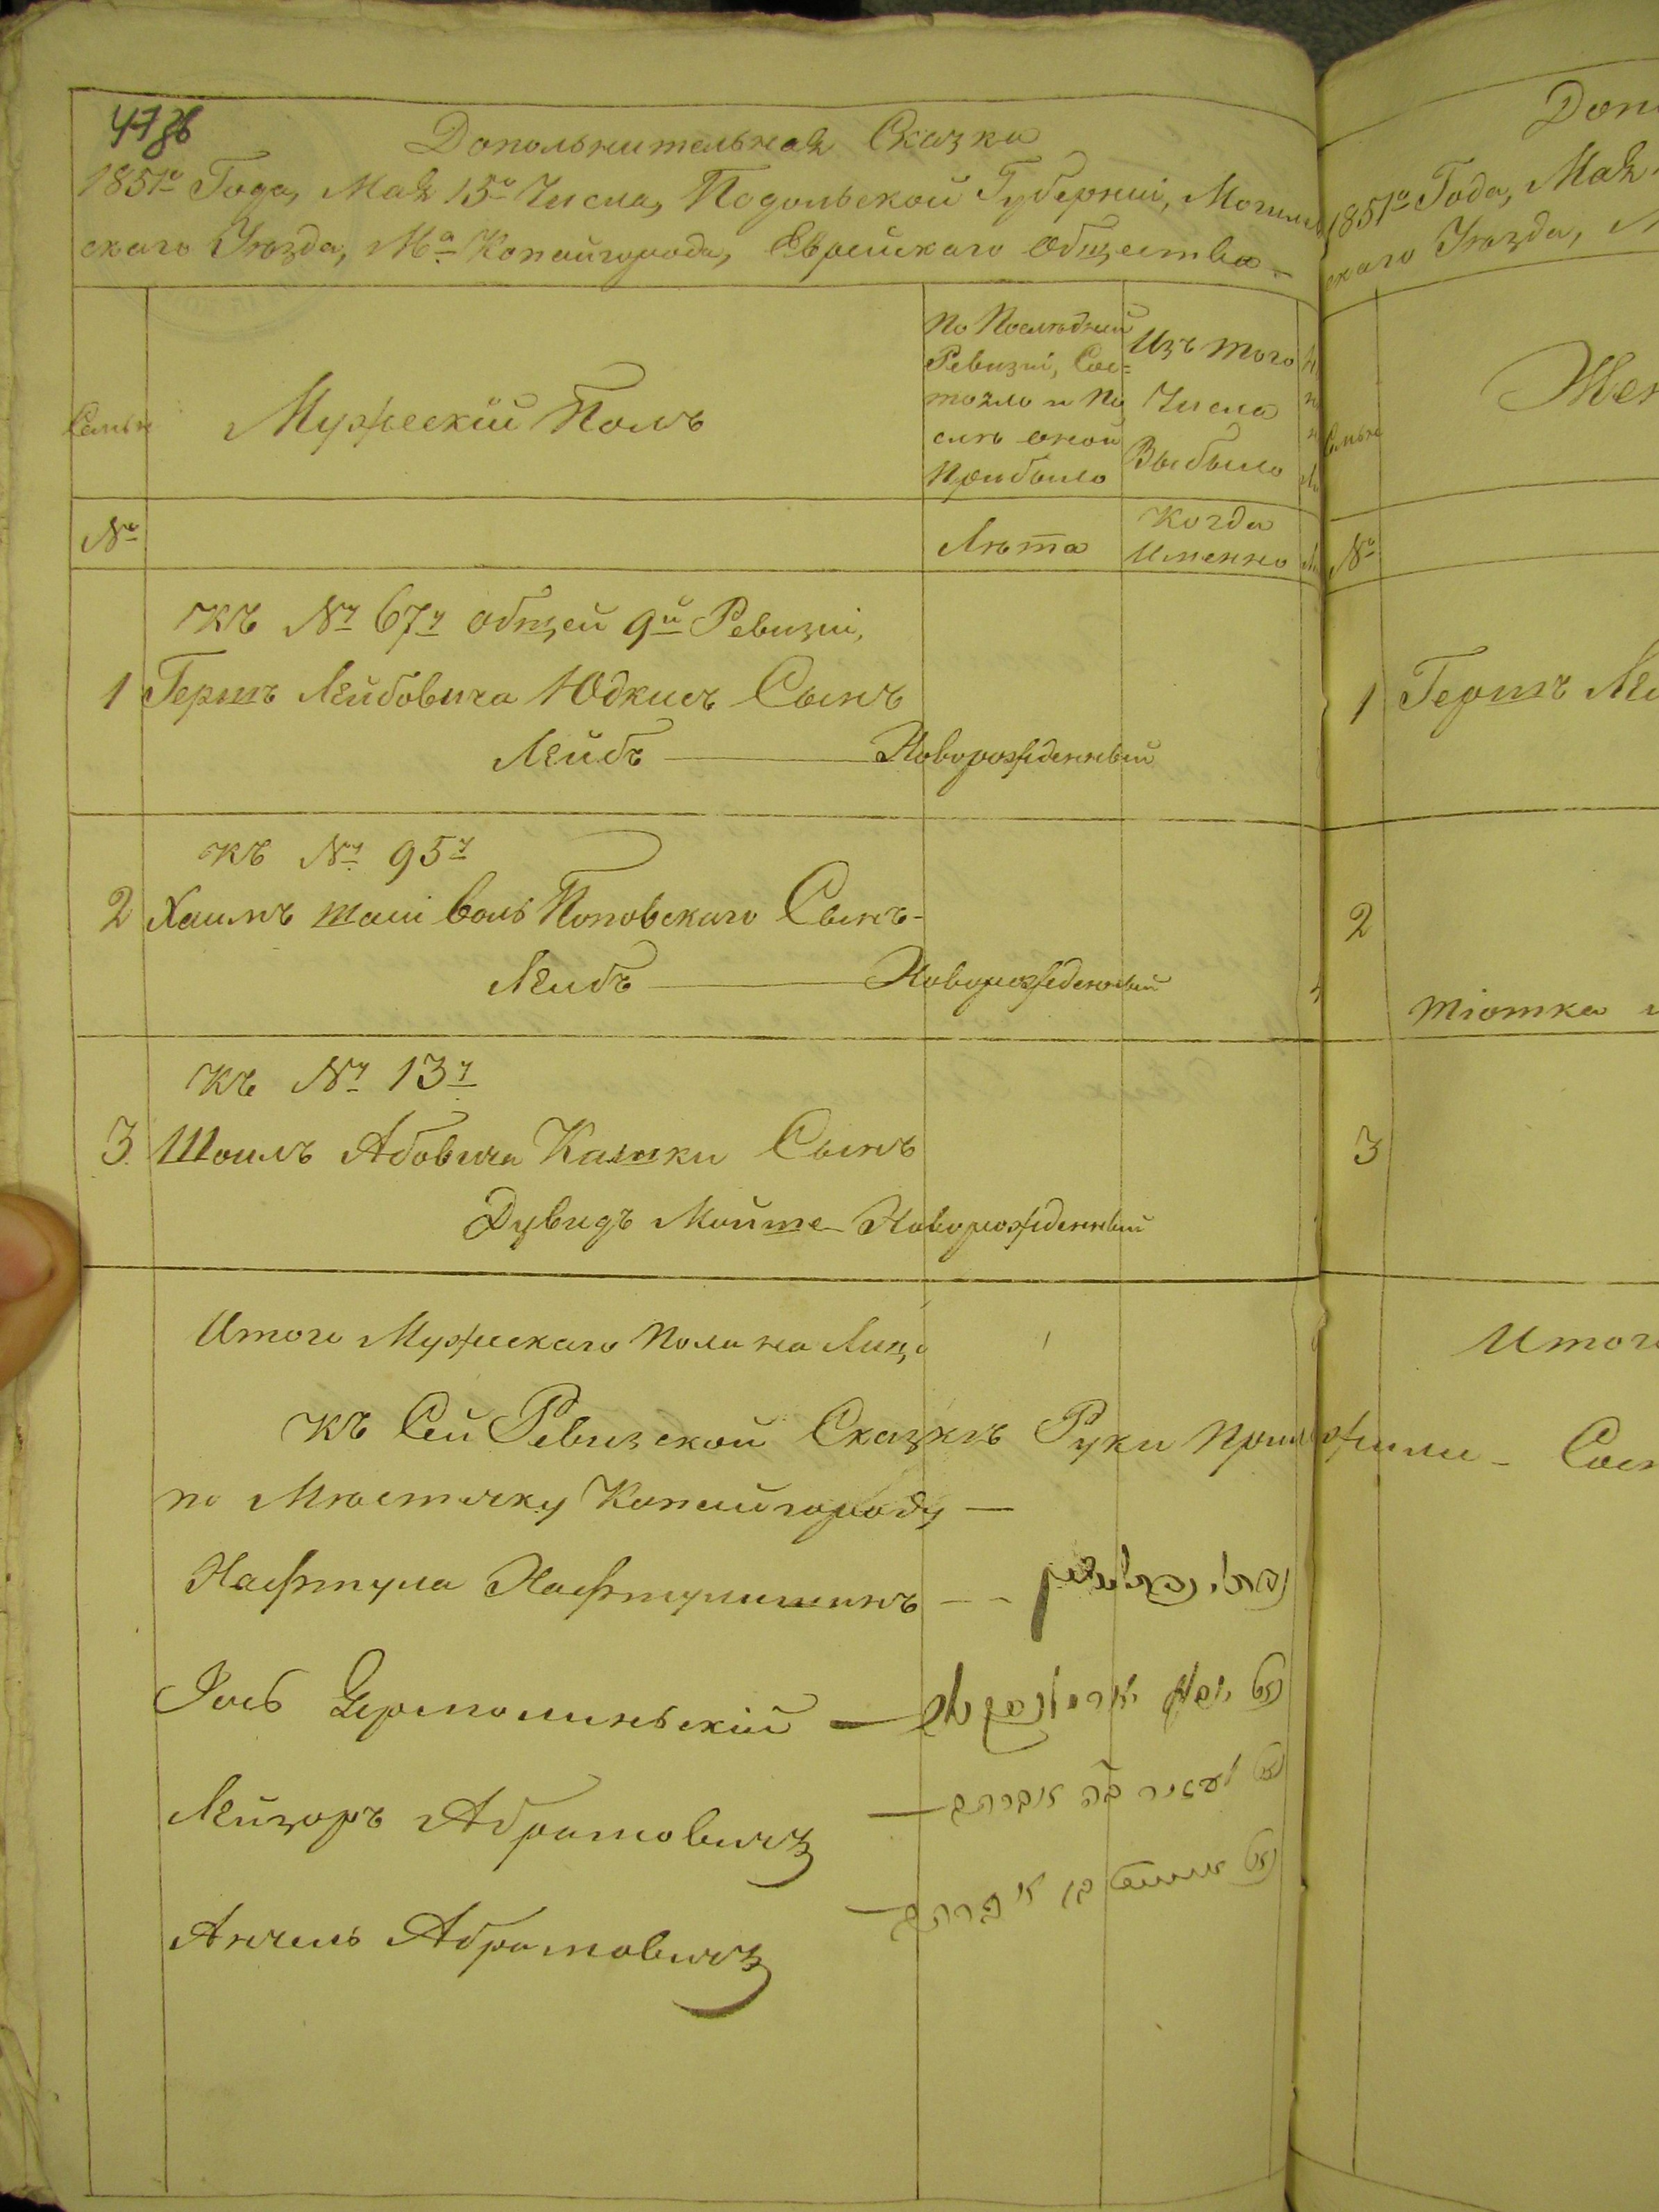 47зв
Допольнительная Сказка
1851го Года, Мая 15го Числа, Подольской Губернiи, Могилев
скаго Уѣзда, Мка Копайгорода, Еврейскаго Общества
Семьи
Мужескiй Полъ
По Послѣдней
Ревизiи, Сос=
тояло и По
слѣ оной
Прибыло
Изъ того
Числа
Выбыло
№
Лѣта
Когда
Именно
Къ №у 67у Общей 9й Ревизiи,
1 Гершъ Лейбовича Юдкисъ Сынъ
Лейбъ — Новорожденный
Къ №у 95у
2 Хаимъ Попoвскаго Сынъ
Лейбъ — Новорожденный
Къ №у 13у
3 Шоилъ Абовича Кашки Сынъ
Дувидъ Мойше — Новорожденный
Итого Мужескаго Пола на Лицо
Къ Сей Ревизской Сказкѣ Руки Приложили
по Мѣстечку Копайгороду —
Нафтула Нафтулишинъ — נפתלי
Iось Ярмолинскiй —
Лейзоръ Абрамовичъ — אברהם
Анчель Абрамовичъ — בן אברהם
Доп
1851го Года, Мая
скаго Уѣзда, М
Семьи
Жен
№
1 Гершъ Ле
2
3
Итого